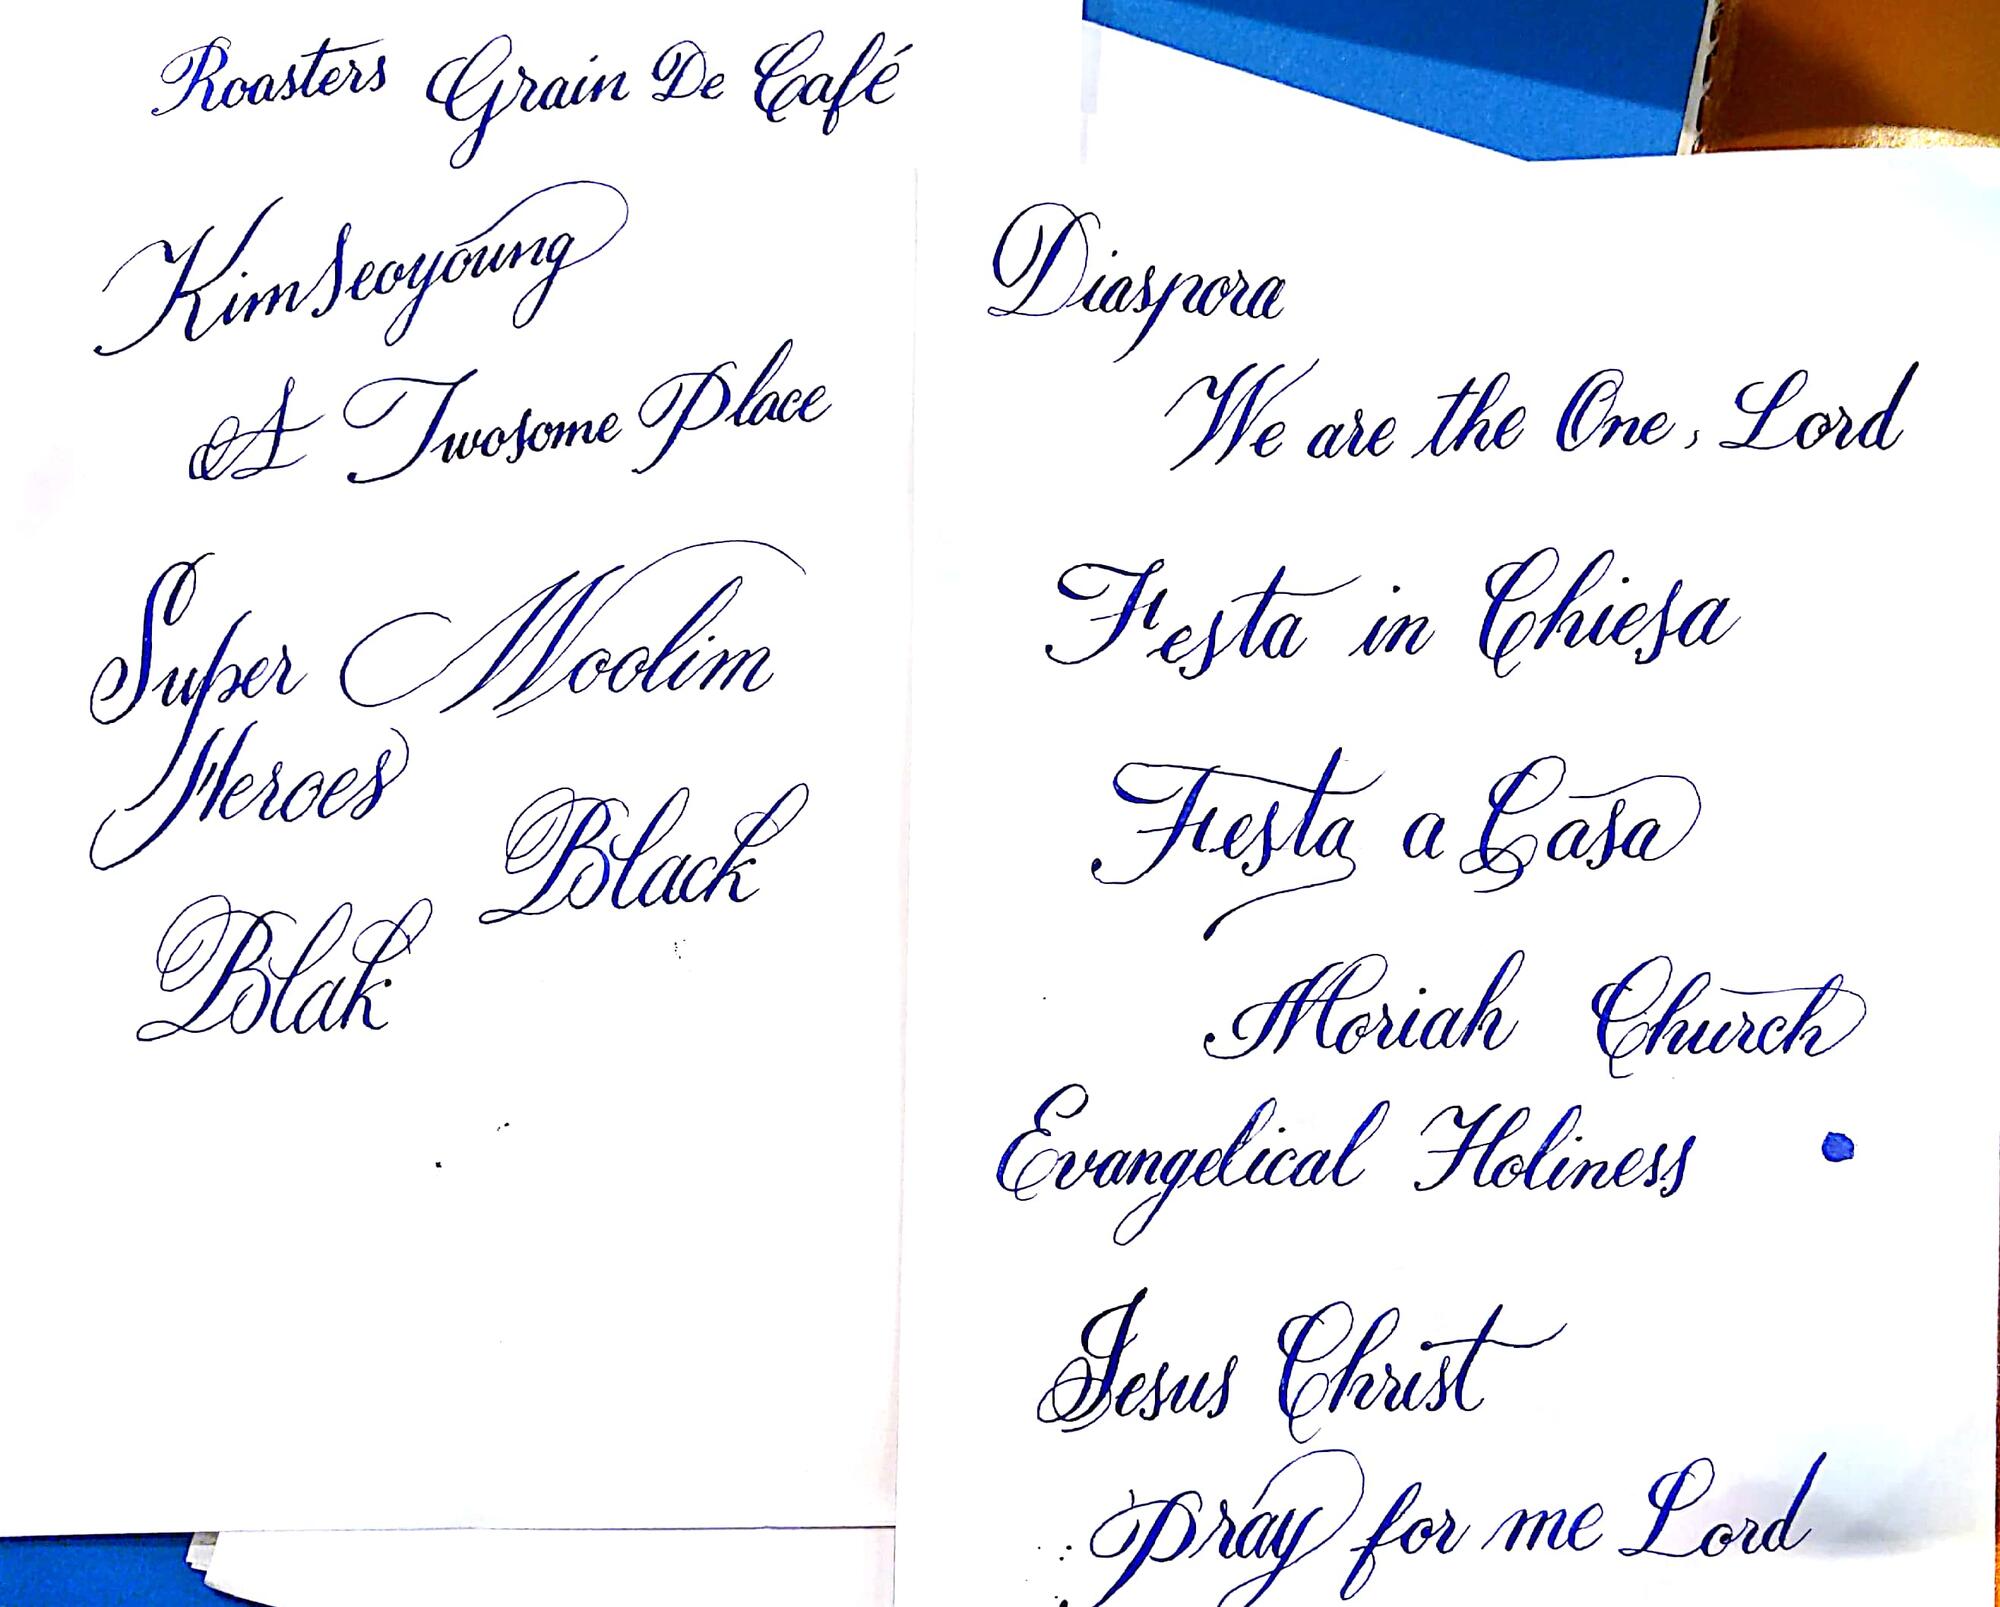 Roasters Grain De Café
Kim Seoyoung
A Twosome Place
Super Woolim
Heroes
Black
Blak
Diaspora
We are the One, Lord
Festa in Chiesa
Festa a Casa
Moriah Church
Evangelical Holiness
Jesus Christ
Pray for me Lord